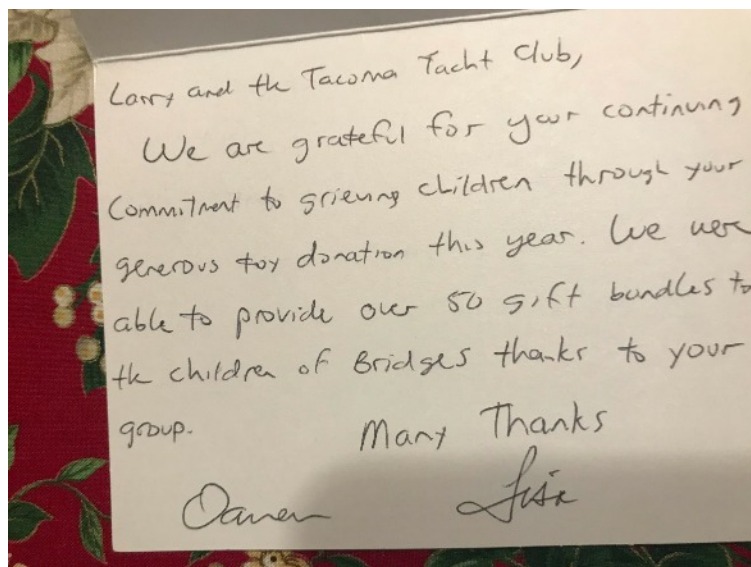 Larry and the Tacoma Yacht Club,
We are grateful for your continuing
Commitment to grieving children through your
generous toy donation this year. We were
able to provide over 50 gift bundles to
the children of Bridges thanks to your
group.
Many Thanks
Lisa